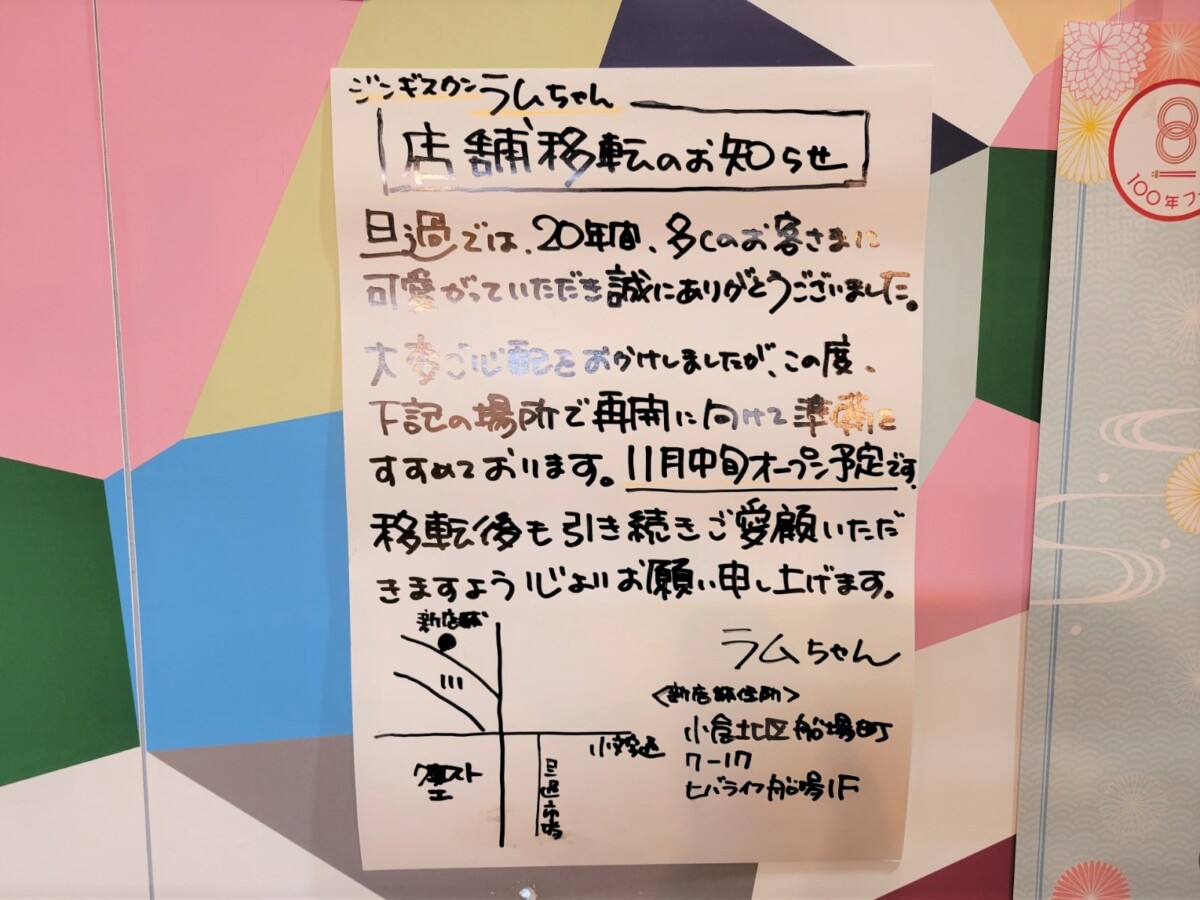 ジンギスカン ラムちゃん
店舗移転のお知らせ
旦過では、20年間、多くのお客さまに
可愛がっていただき誠にありがとうございました。
大変ご心配をおかけしましたが、この度、
下記の場所で再開に向けて準備に
すすめております。11月中旬オープン予定です。
移転後も引き続きご愛顧いただ
きますよう
お願い申し上げます。
新店舗
ラムちゃん
<新店舗住所>
小倉北区船場町
7-17
ヒバライフ船場1F
クエスト
旦過市場
100年フ